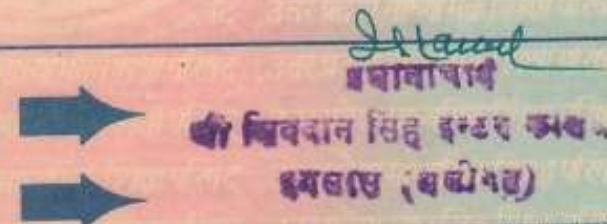 प्रधानाचार्य
श्री शिवदान सिंह इन्टर
इगलास (अलीगढ़)